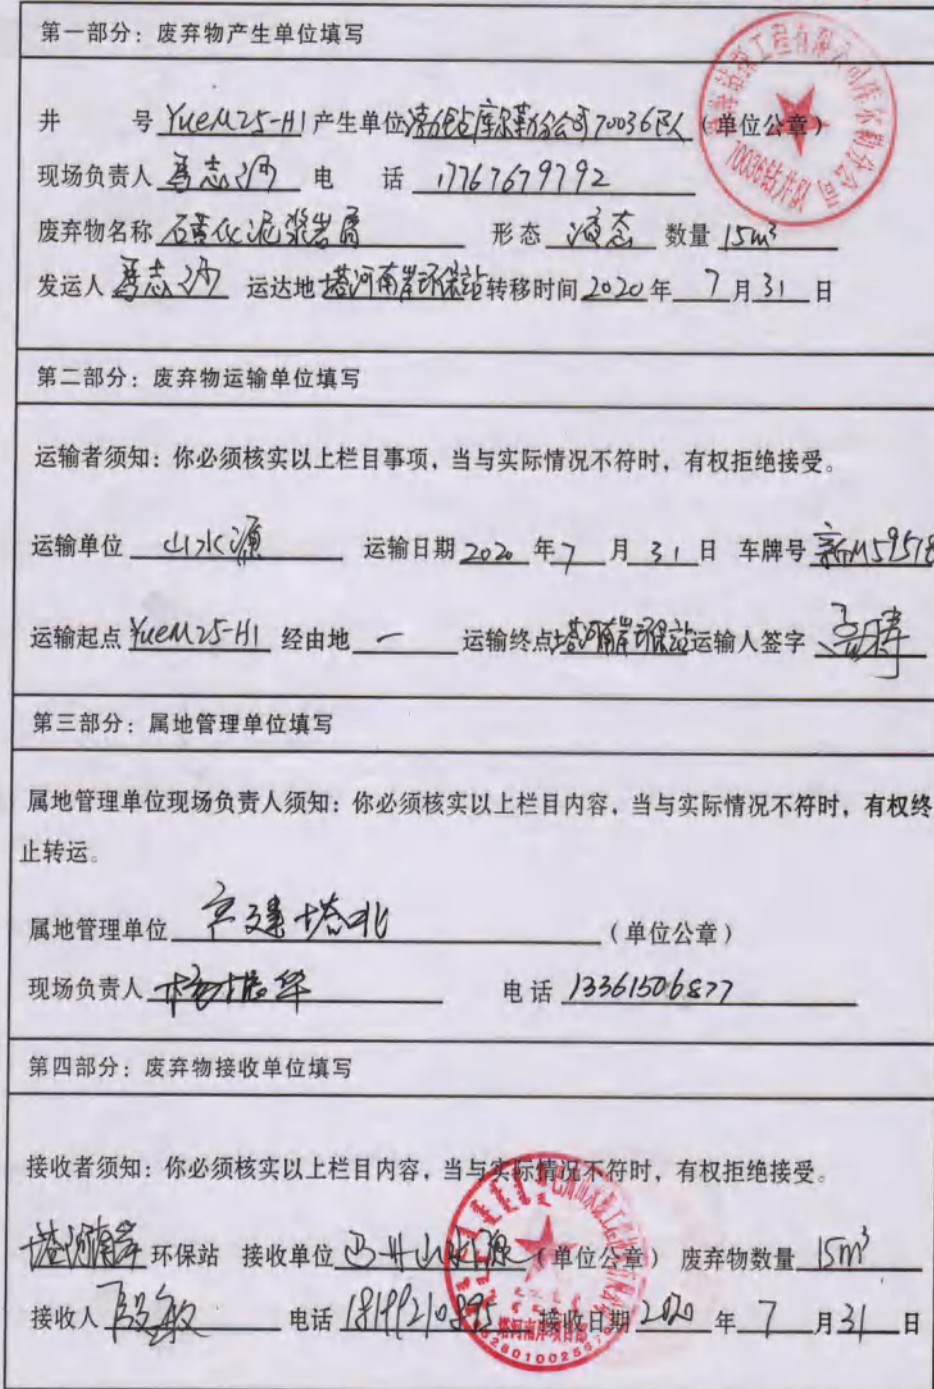 第一部分：废弃物产生单位填写
井 号 YueM25-H1 产生单位 渤钻库尔勒分公司70036队 （单位公章）
70036钻井队
现场负责人 电 话 17767679792
废弃物名称 磺化泥浆岩屑 形态 液态 数量 15m³
发运人 运达地 塔河南岸环保站 转移时间 2020 年 7 月 31 日
第二部分：废弃物运输单位填写
运输者须知：你必须核实以上栏目事项，当与实际情况不符时，有权拒绝接受。
运输单位 山水源 运输日期 2020 年 7 月 31 日 车牌号 新M59518
运输起点 YueM25-H1 经由地 一 运输终点 塔河南岸环保站 运输人签字
第三部分：属地管理单位填写
属地管理单位现场负责人须知：你必须核实以上栏目内容，当与实际情况不符时，有权终
止转运。
属地管理单位 塔北 （单位公章）
现场负责人 杨振华 电话 13361506877
第四部分：废弃物接收单位填写
接收者须知：你必须核实以上栏目内容，当与实际情况不符时，有权拒绝接受。
塔河南岸 环保站 接收单位 巴州山水源 （单位公章） 废弃物数量 15m³
接收人 段敏 电话 18199210895 接收日期 2020 年 7 月 31 日
塔河南岸项目部